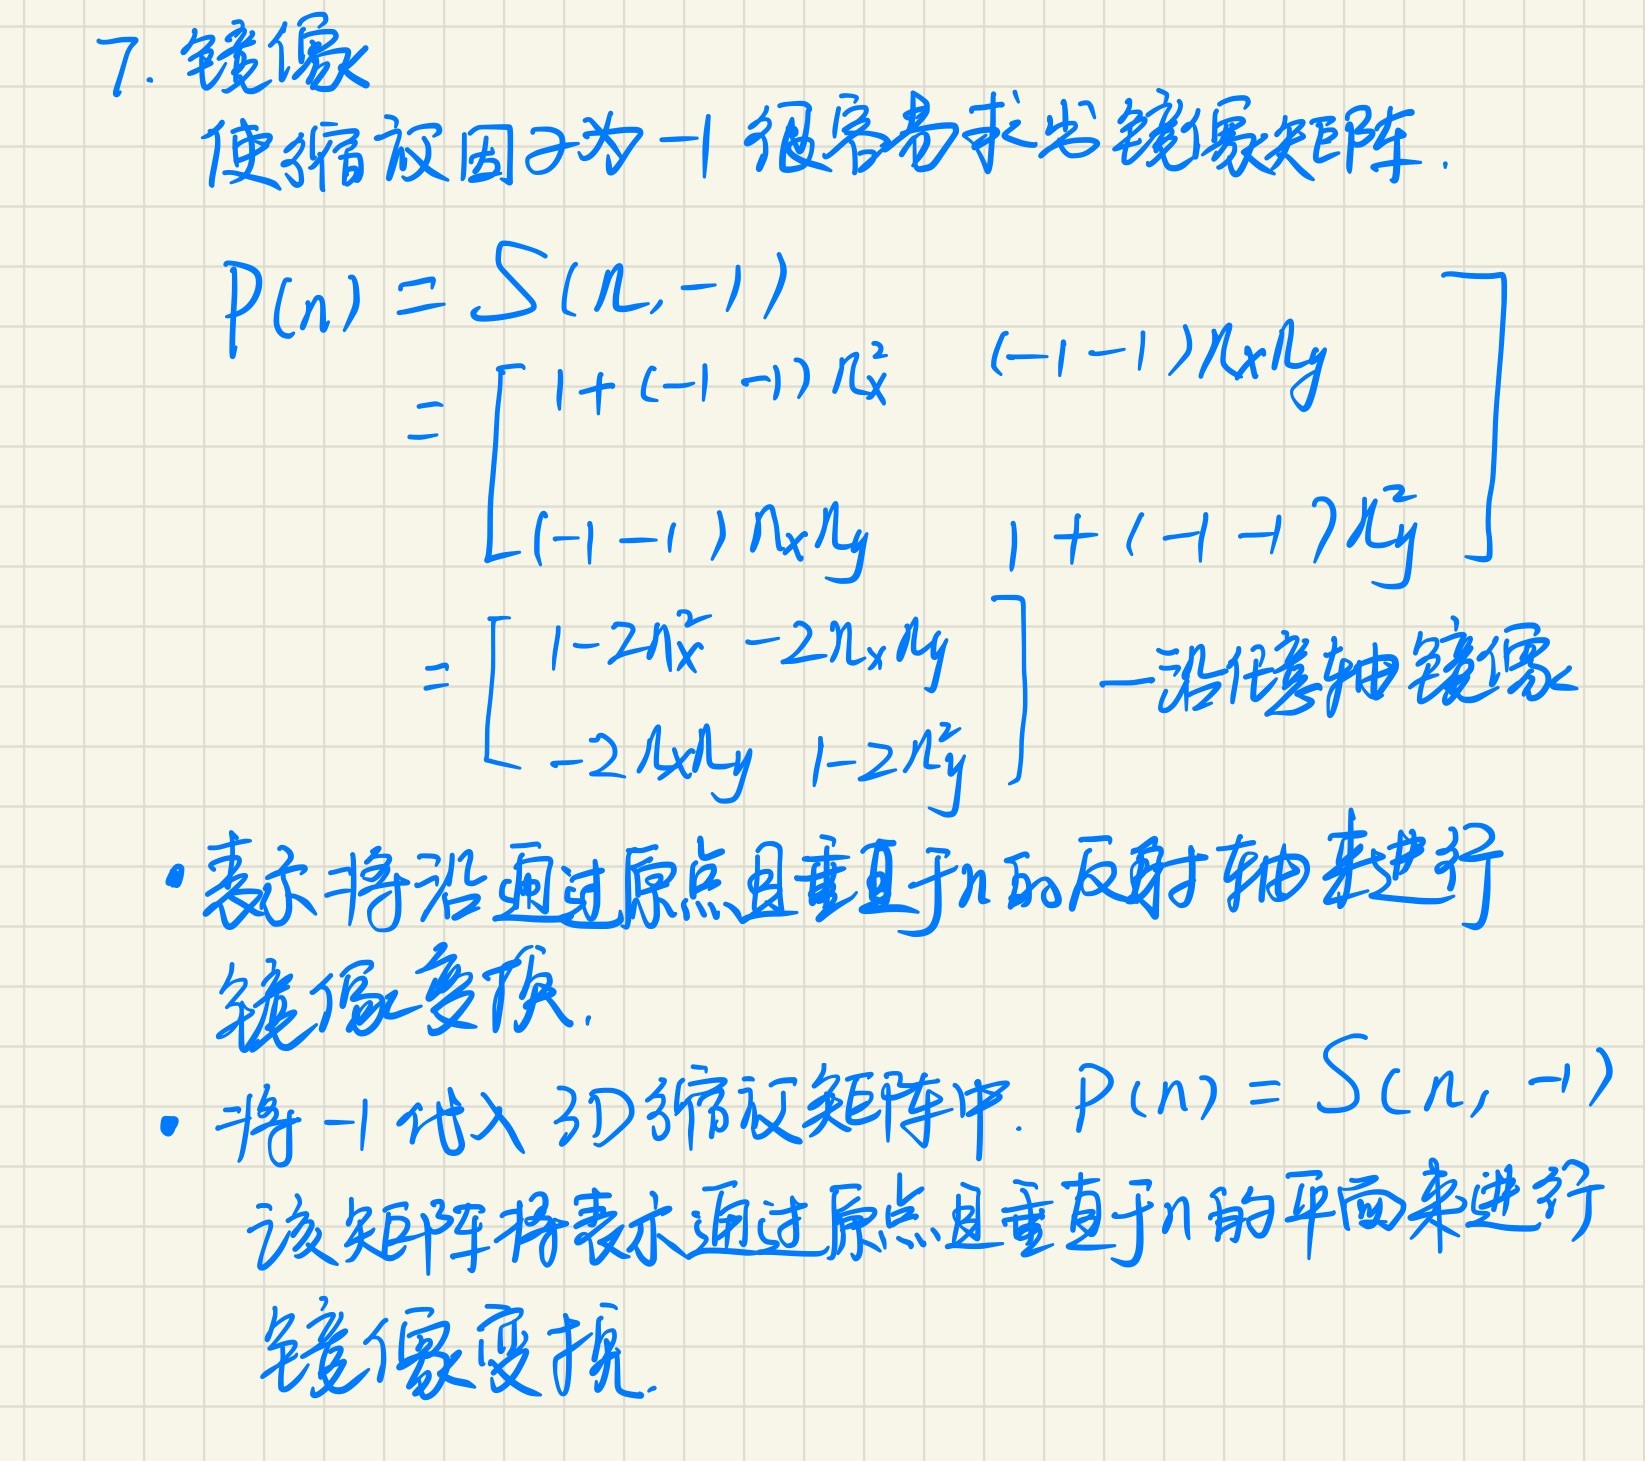 7. 镜像
使缩放因子为-1很容易求出镜像矩阵.
P(n) = S(n, -1)
= [ 1+(-1-1)n_x^2 (-1-1)n_x n_y
(-1-1)n_x n_y 1+(-1-1)n_y^2 ]
= [ 1-2n_x^2 -2n_x n_y —沿任意轴镜像
-2n_x n_y 1-2n_y^2 ]
• 表示将沿通过原点且垂直于n的反射轴来进行
镜像变换.
• 将-1代入3D缩放矩阵中. P(n) = S(n, -1)
该矩阵将表示通过原点且垂直于n的平面来进行
镜像变换.